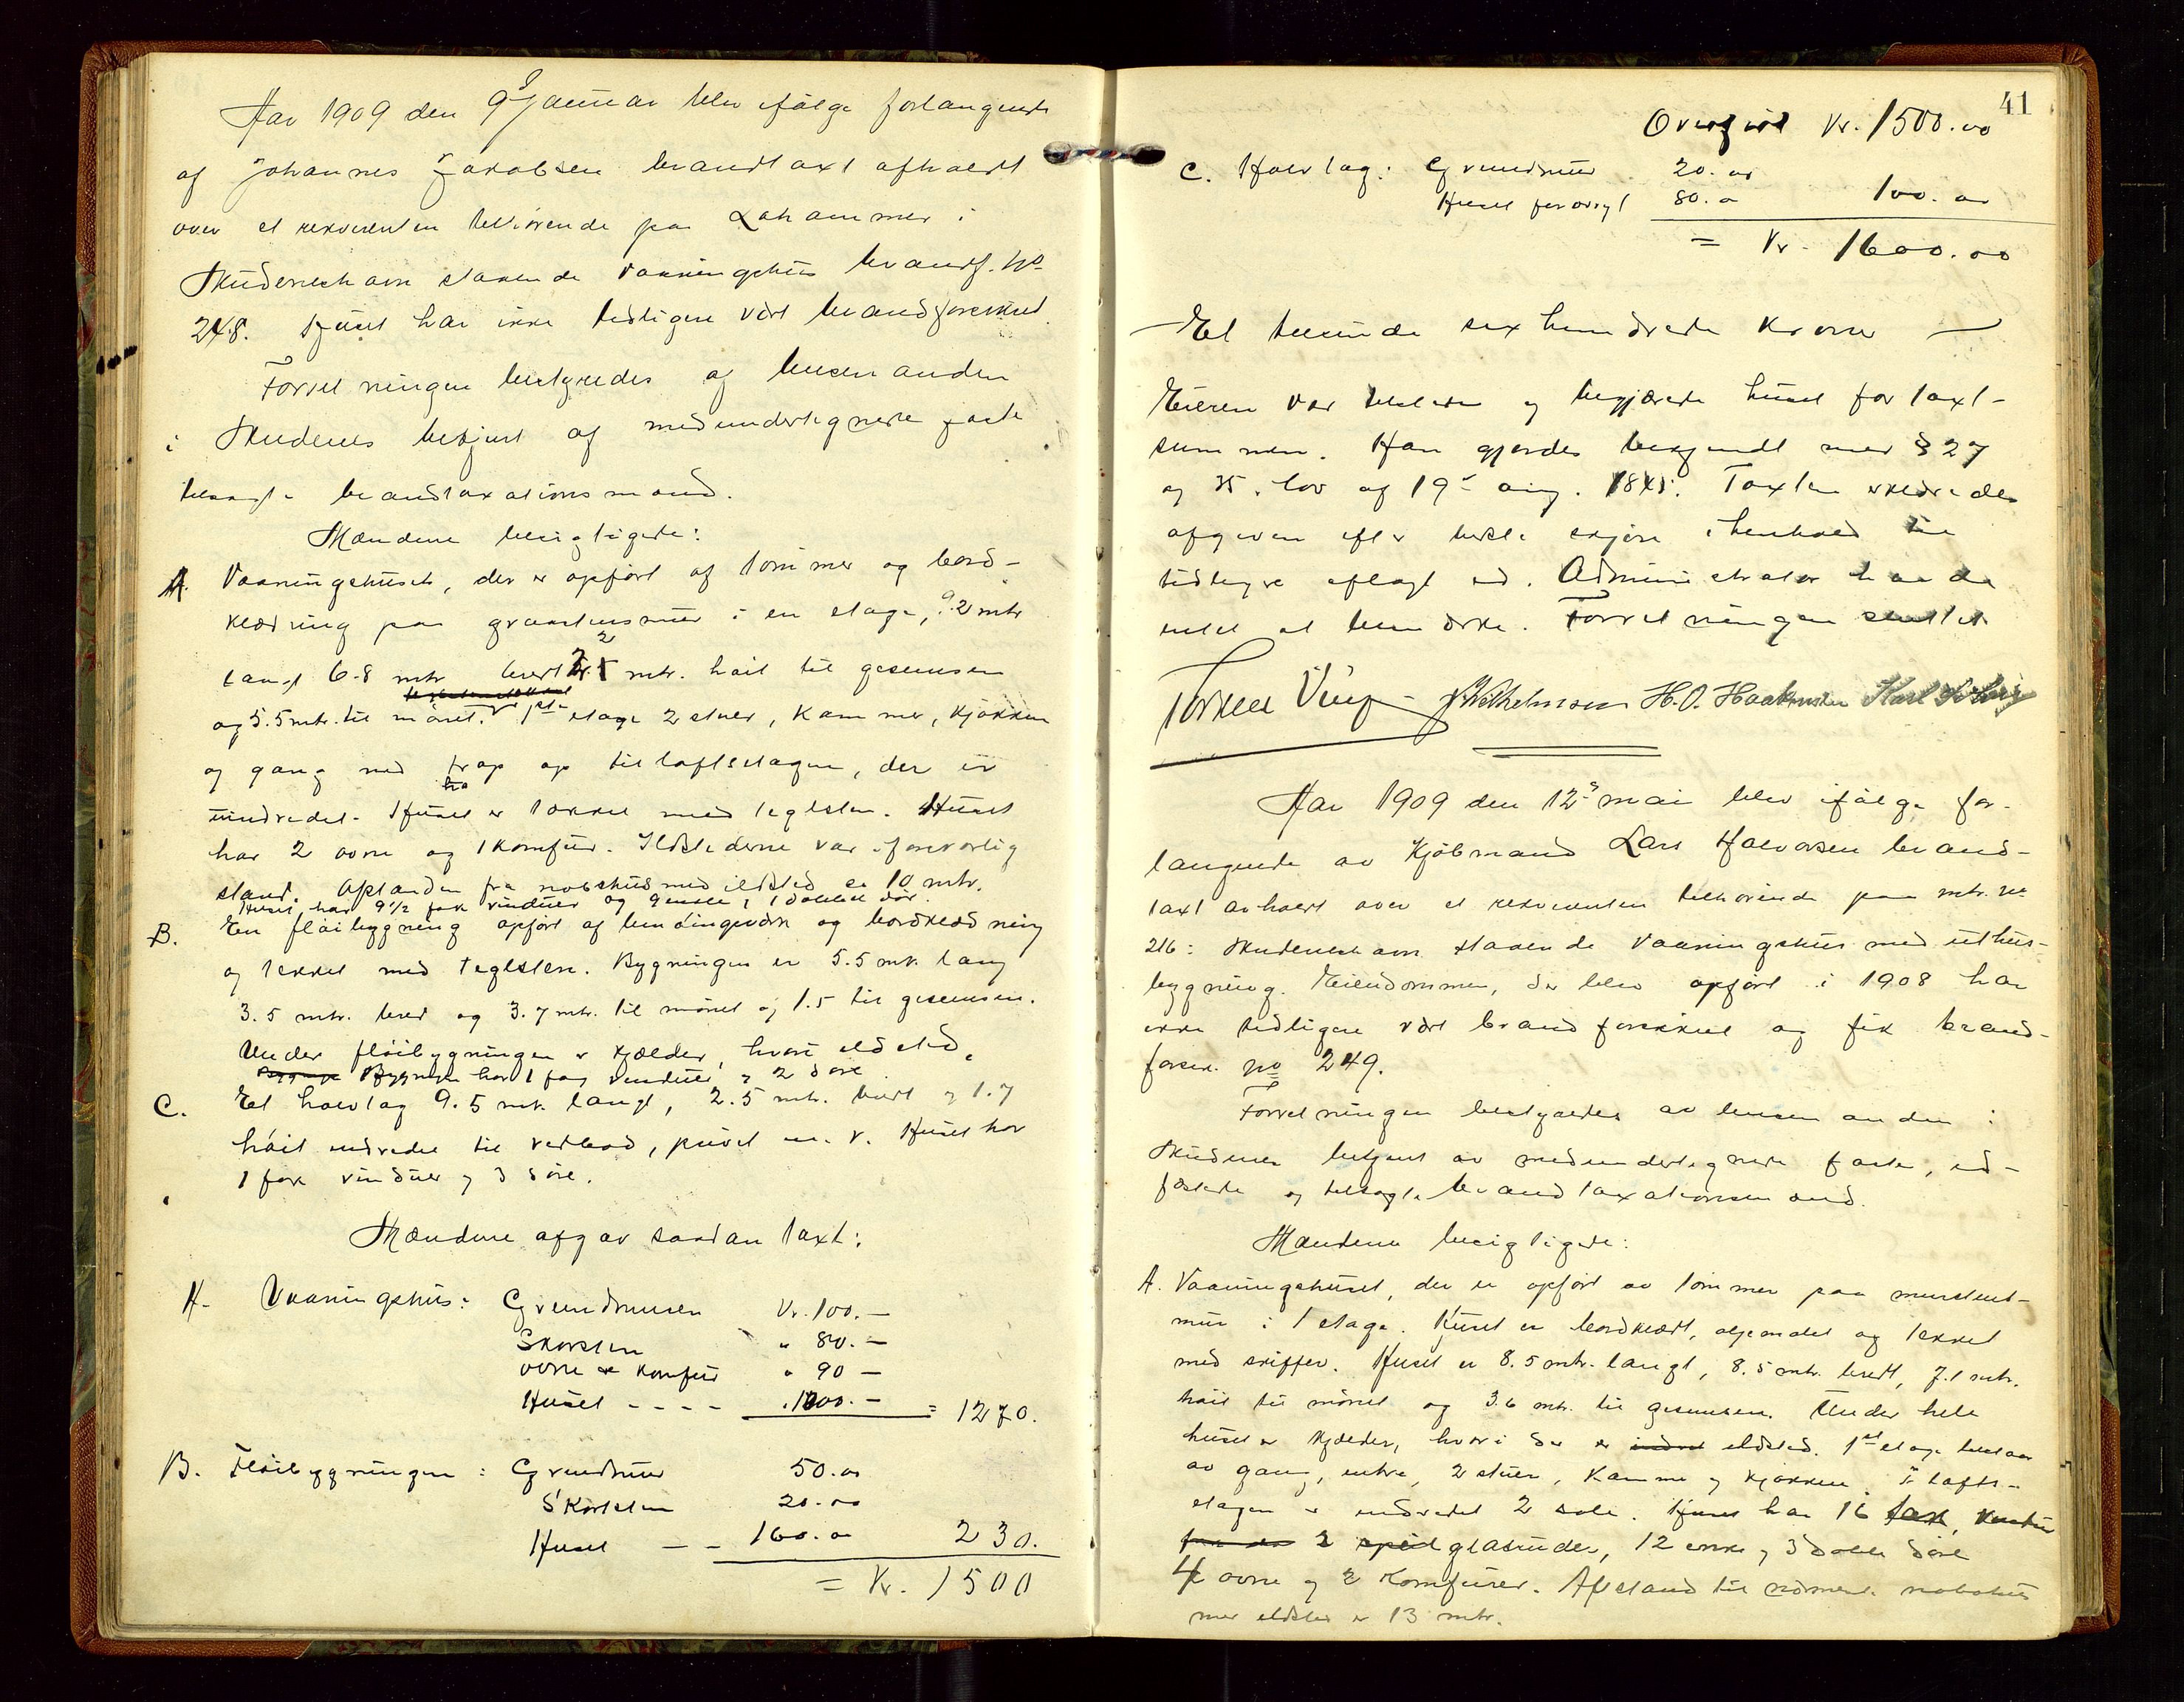 Aar 1909 den 9 Januar blev ifølge forlangende
af Johannes Jakobsen brandtaxt afholdt
over et rekvirenten tilhørende paa Lahammer i
Skudeneshavn staaende vaaningshus brandf. No
248. Huset har ikke tidligere vært brandforsikret.
Forretningen bestyredes af lensmanden
i Skudenes betjent af medundertegnede faste
tilsagte brandtaxationsmænd.
Mændene besigtigede:
A. Vaaningshuset, der er opført af tømmer og bord-
klædning paa graastensmur i en etage, 9.2 mtr
langt 6.8 mtr bredt mtr. høit til gesemsen
og 5.5 mtr. til mønet. 1ste etage 2 stuer, kammer, kjøkken
og gang med trap op til loftsetagen, der er
uindredet. Huset er tækket med teglsten. Huset
har 2 ovne og 1 komfur. Ildstederne var i forsvarlig
stand. Afstanden fra nabohus med ildsted er 10 mtr.
Huset har 9 1/2 fak vinduer og 9 enkle, 1 dobbel dør.
B. En fløibygning opført af bindingsværk og bordklædning
og tækket med teglsten. Bygningen er 5.5 mtr. lang
3.5 mtr. bred og 3.7 mtr. til mønet og 1.5 til gesemsen.
Under fløibygningen er kjælder, hvori ildsted.
Bygningen har 1 fag vinduer og 2 døre
C. Et halvtag 9.5 mtr. langt, 2.5 mtr. bredt og 1.7
høit indredet til vedbod, privet m. v. Huset har
1 fak vinduer og 3 døre.
Mændene afgav saadan taxt:
A. Vaaningshus: Grundmuren Kr. 100.-
Skorsten " 80.-
ovne & komfur " 90 -
Huset - - - - 1000.- = 1270.
B. Fløibygningen: Grundmur 50.00
Skorsten 20.00
Huset - - 160.00 230.
= Kr. 1500
41
Overført Kr. 1500.00
C. Halvtag: Grundmur 20.00
Huset forøvrigt 80.00 100.00
= Kr. 1600.00
- Et tusinde sex hundrede kroner -
Eieren var tilstede og begjærede huset for taxt-
summen. Han gjordes bekjendt med § 27
og 35. lov af 19de aug. 1845. Taxten erklæredes
afgiven efter bedste skjøn i henhold til
tidligere aflagt ed. Administrator havde
intet at bemærke. Forretningen sluttet.
Torkel J. Wilhelmsen H. O. Haakonsen Karl
Aar 1909 den 12 mai blev ifølge for-
langende av Kjøbmand Lars Halvorsen brand-
taxt avholdt over et rekvirenten tilhørende paa mtr. no
216 i Skudeneshavn staaende vaaningshus med uthus-
bygning. Eiendommen, der blev opført i 1908 har
ikke tidligere vært brandforsikret og fik brand-
forsik. no 249.
Forretningen bestyredes av lensmanden i
Skudenes betjent av medundertegnede faste, ed-
fæstede og tilsagte brandtaxationsmænd.
Mændene besigtigede:
A. Vaaningshuset, der er opført av tømmer paa murstens-
mur i 1 etage. Huset er bordklædt, oljemalet og tækket
med skiffer. Huset er 8.5 mtr. langt, 8.5 mtr. bredt, 7.1 mtr.
høit til mønet og 3.6 mtr. til gesemsen. Under hele
huset er kjælder, hvori der er indred ildsted. 1ste etage bestaar
av gang, entre, 2 stuer, kammer og kjøkken. I lofts-
etagen er indredet 2 sale. Huset har 16 fak vindu
2 speil glasruder, 12 enkle og 3 doble døre
4 ovne og 2 komfurer. Afstand til nærmeste nabohus
med ildsted er 13 mtr.